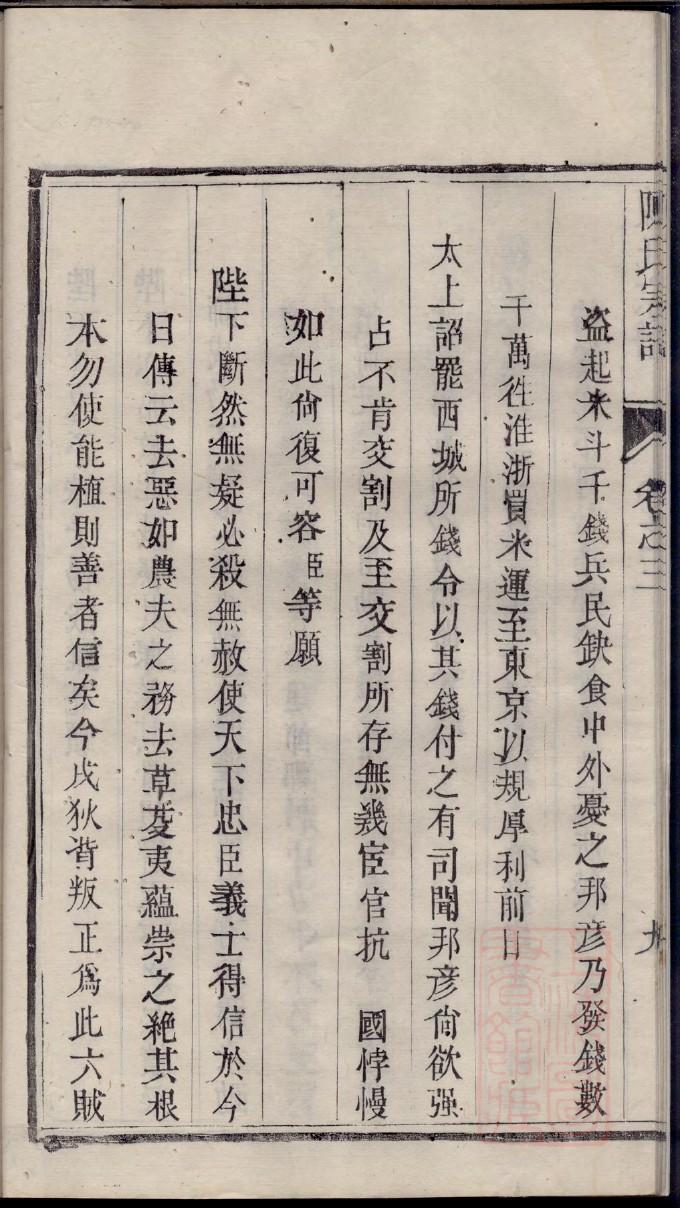 陳氏家譜 卷之三 九
盗起米斗千錢兵民缺食中外憂之邦彦乃發錢數
千萬徃淮浙買米運至東京以規厚利前日
太上詔罷西城所錢令以其錢付之有司聞邦彦尙欲强
占不肯交割及至交割所存無幾宦官抗 國悖慢
如此尙復可容臣等願
陛下斷然無疑必殺無赦使天下忠臣義士得信於今
日傳云去惡如農夫之務去草芟夷蘊崇之絶其根
本勿使能植則善者信矣今戎狄背叛正爲此六賊